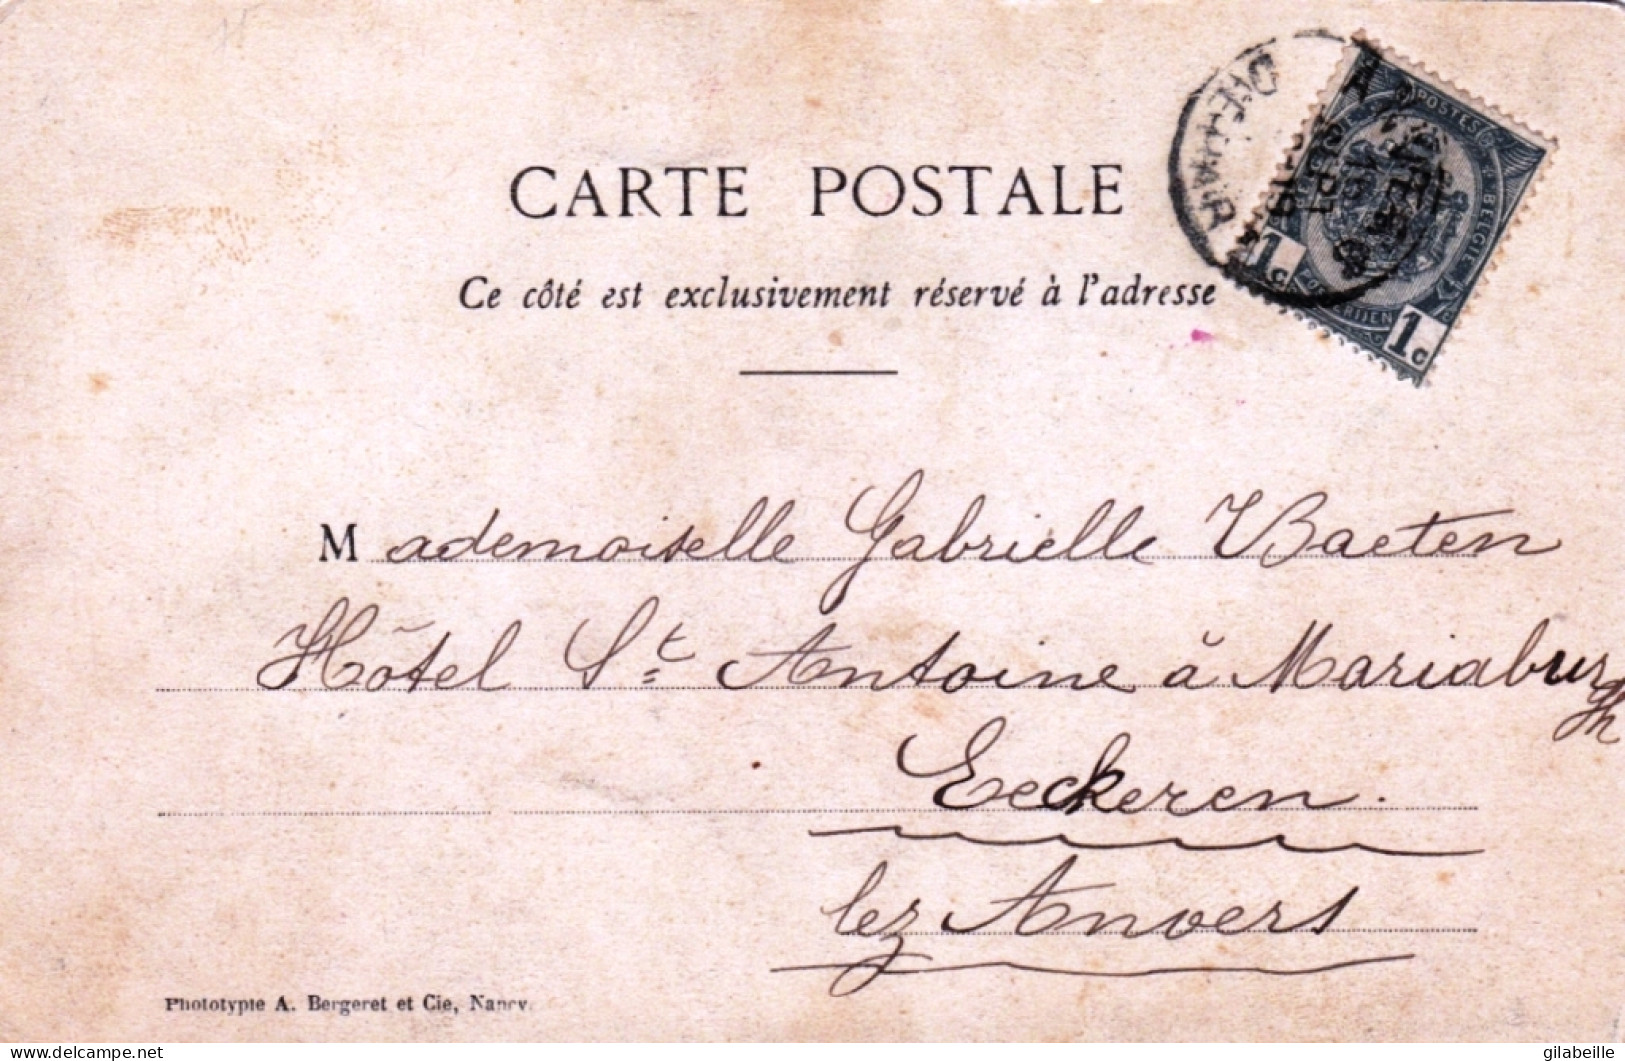 CARTE POSTALE
Ce côté est exclusivement réservé à l'adresse
POSTES
BELGIË
1c
1c
Mademoiselle Gabrielle Baeten
Hôtel St Antoine à Mariaburgh
Eeckeren.
lez Anvers
Phototypie A. Bergeret et Cie, Nancy.
delcampe.net
gilabeille